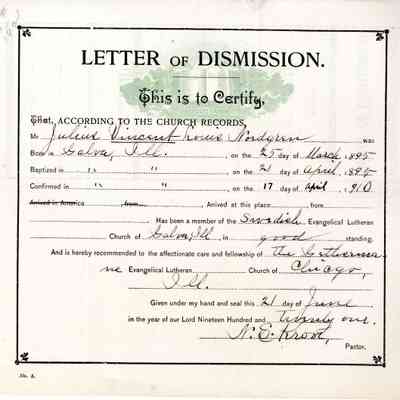 LETTER OF DISMISSION.
This is to Certify,
That, ACCORDING TO THE CHURCH RECORDS,
Mr Julius Vincent Louis Nordgren was
Born in Galva, Ill. , on the 25 day of March 1895
Baptized in " " , on the 21 day of April, 1895
Confirmed in " " , on the 17 day of April , 1910
Arrived in America from Arrived at this place , from
Has been a member of the Swedish Evangelical Lutheran
Church of Galva, Ill in good standing.
And is hereby recommended to the affectionate care and fellowship of the
Evangelical Lutheran Church of Chicago,
Ill.
Given under my hand and seal this 21 day of June
in the year of our Lord Nineteen Hundred and Twenty one.
N. E. Kroon,
Pastor.
No. 5.